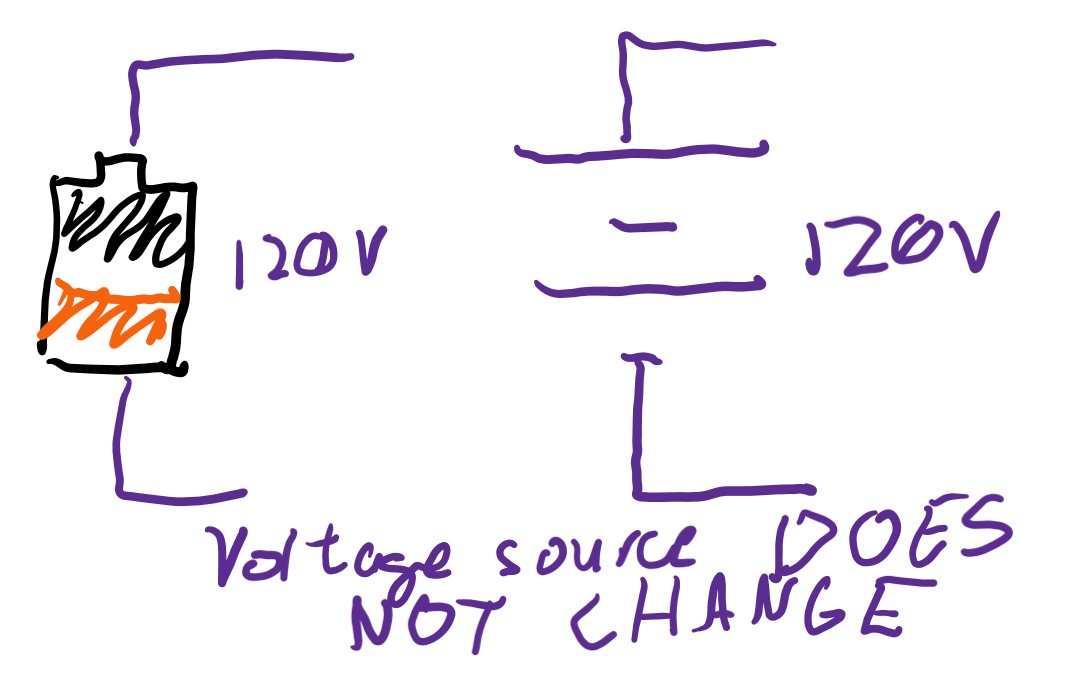 120V
120V
Voltage source DOES
NOT CHANGE